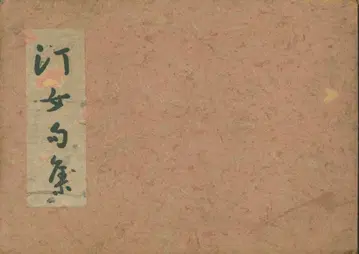 汀女句集